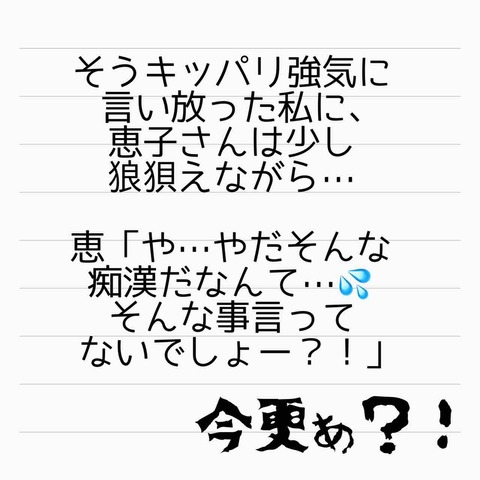 そうキッパリ強気に
言い放った私に、
恵子さんは少し
狼狽えながら…
恵「や…やだそんな
痴漢だなんて…💦
そんな事言って
ないでしょー？！」
今更ぁ？！